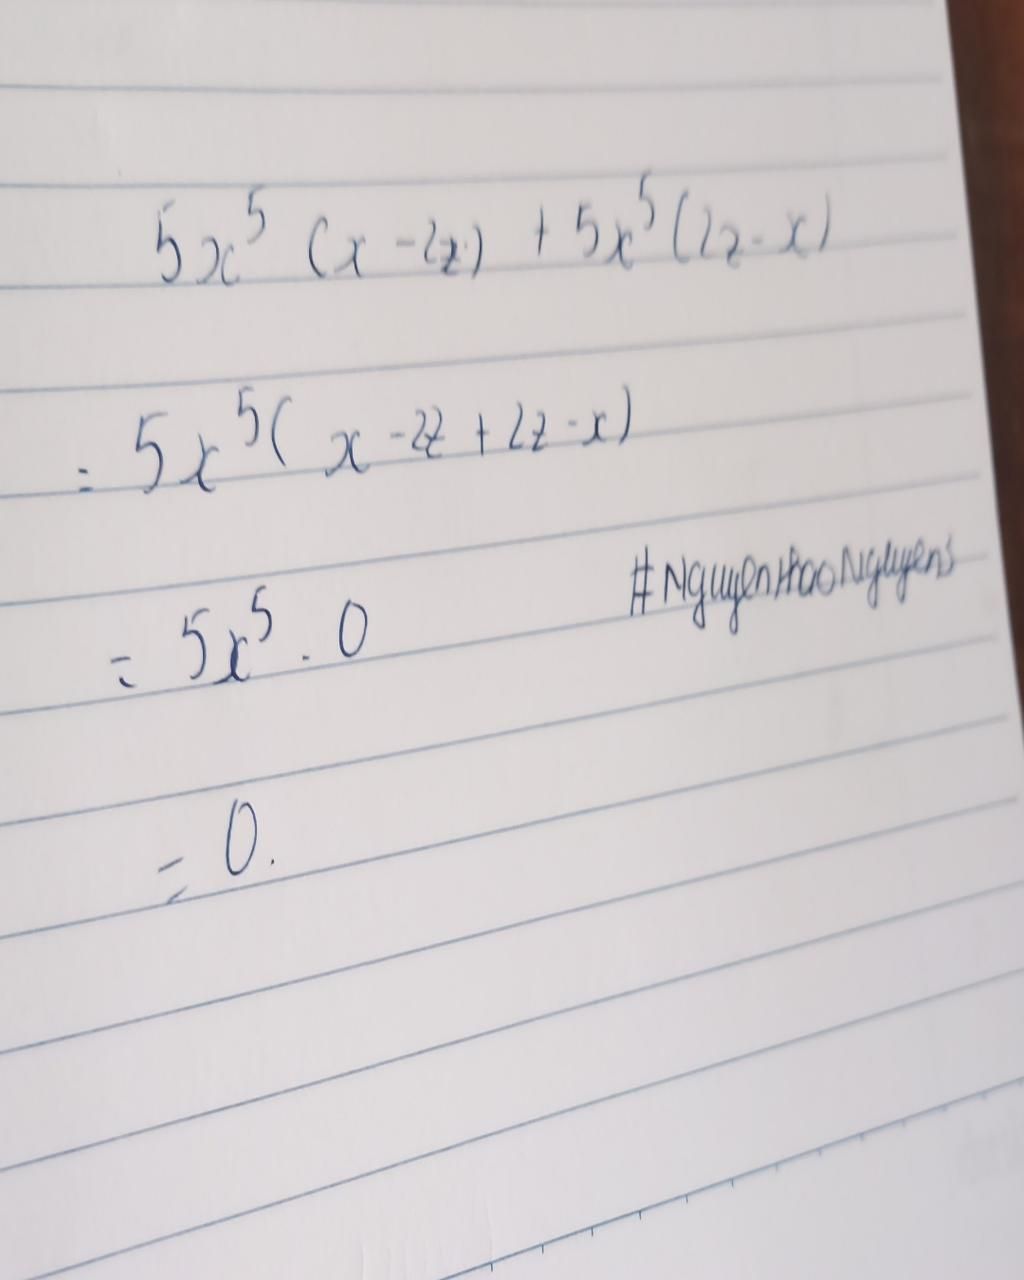 5x⁵ (x - 2z) + 5x⁵ (2z - x)
= 5x⁵ ( x - 2z + 2z - x)
= 5x⁵ . 0
#NguyenHaoNguyens
= 0.